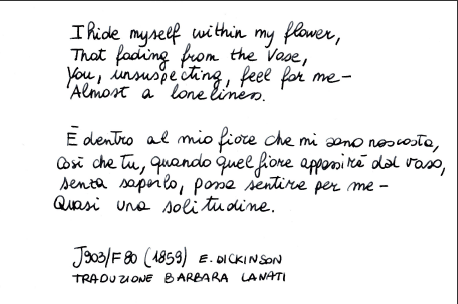 I hide myself within my flower,
That fading from the Vase,
You, unsuspecting, feel for me –
Almost a loneliness.
È dentro al mio fiore che mi sono nascosta,
Così che tu, quando quel fiore appassirà dal vaso,
senza saperlo, possa sentire per me –
Quasi una solitudine.
J903/F80 (1859) E. DICKINSON
TRADUZIONE BARBARA LANATI